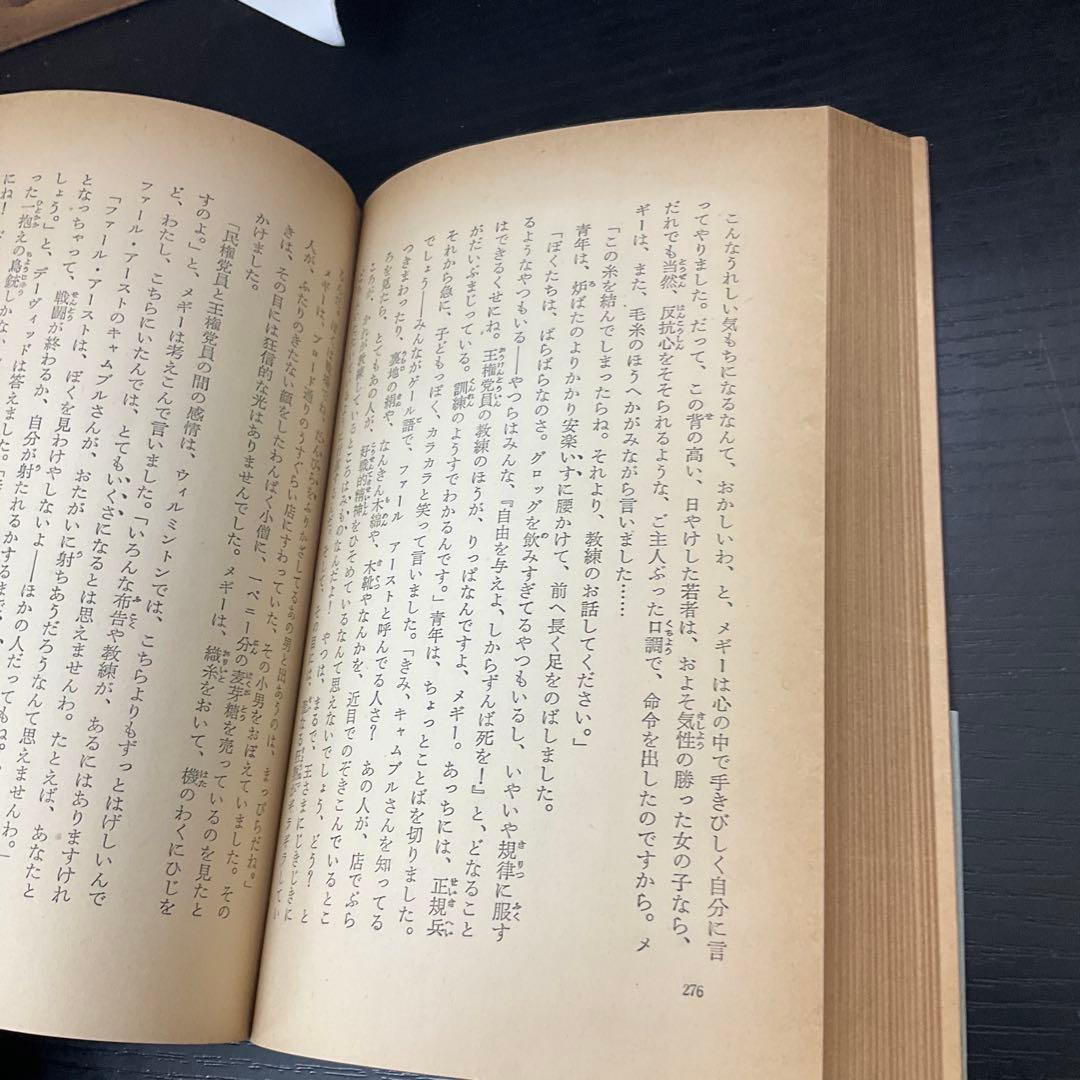 こんなうれしい気もちになるなんて、おかしいわ、と、メギーは心の中で手きびしく自分に言
ってやりました。だって、この背の高い、日やけした若者は、およそ気性の勝った女の子なら、
だれでも当然、反抗心をそそられるような、ご主人ぶった口調で、命令を出したのですから。メ
ギーは、また、毛糸のほうへかがみながら言いました……
「この糸を結んでしまったらね。それより、教練のお話してください。」
青年は、炉ばたのよりかかり安楽いすに腰かけて、前へ長く足をのばしました。
「ぼくたちは、ばらばらなのさ。グロッグを飲みすぎてるやつもいるし、いやいや規律に服す
るようなやつもいる――やつらはみんな、『自由を与えよ、しからずんば死を!』と、どなること
はできるくせにね。王権党員の教練のほうが、りっぱなんですよ、メギー。あっちには、正規兵
がだいぶまじっている。訓練のようすでわかるんです。」青年は、ちょっとことばを切りました。
それから急に、子どもっぽく、カラカラと笑って言いました。「きみ、キャムブルさんを知ってる
でしょう――みんながゲール語で、ファール アーストと呼んでる人さ? あの人が、店でぶら
つきまわったり、裏地の絹や、なんきん木綿や、木靴やなんかを、近目でのぞきこんでいるとこ
ろを見たら、とてもあの人が、好戦的精神をひそめているなんて思えないでしょう、どう? と
ころが、かれが教練しているところはみものなんだよ! やつは、まるで、王さまにじきじきに
メギーは、ブロード通りのうすぐらい店にすわっていた、その小男をおぼえていました。その
人が、ふたりのきたない顔をしたわんぱく小僧に、一ペニー分の麦芽糖を売っているのを見たと
きは、その目には狂信的な光はありませんでした。メギーは、織糸をおいて、機のわくにひじを
かけました。
「民権党員と王権党員の間の感情は、ウィルミントンでは、こちらよりもずっとはげしいんで
すのよ。」と、メギーは考えこんで言いました。「いろんな布告や教練が、あるにはありますけれ
ど、わたし、こちらにいたんでは、とてもいくさになるとは思えませんわ。たとえば、あなたと
ファール・アーストのキャムブルさんが、おたがいに射ちあうだろうなんて思えませんわ。」
「ファール・アーストは、ぼくを見わけやしないよ――ほかの人だってもね。
となっちゃって、戦闘が終わるか、自分が射たれるかするまで、
しょう。」と、デーヴィッドは答えました。
った一抱えの鳥銃しかな
にね!
276